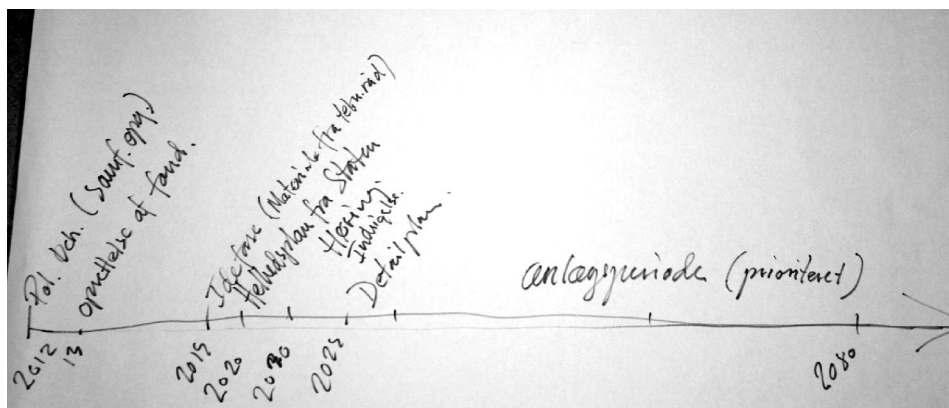 Pol. Beh. (Samf. opg.)
oprettelse af fond.
Idefase (Materiale fra tekn. råd)
Helhedsplan fra Staten
Høring.
Indsigelse.
Detailplan.
anlægsperiode (prioriteret)
2012
13
2019
2020
2025
2080